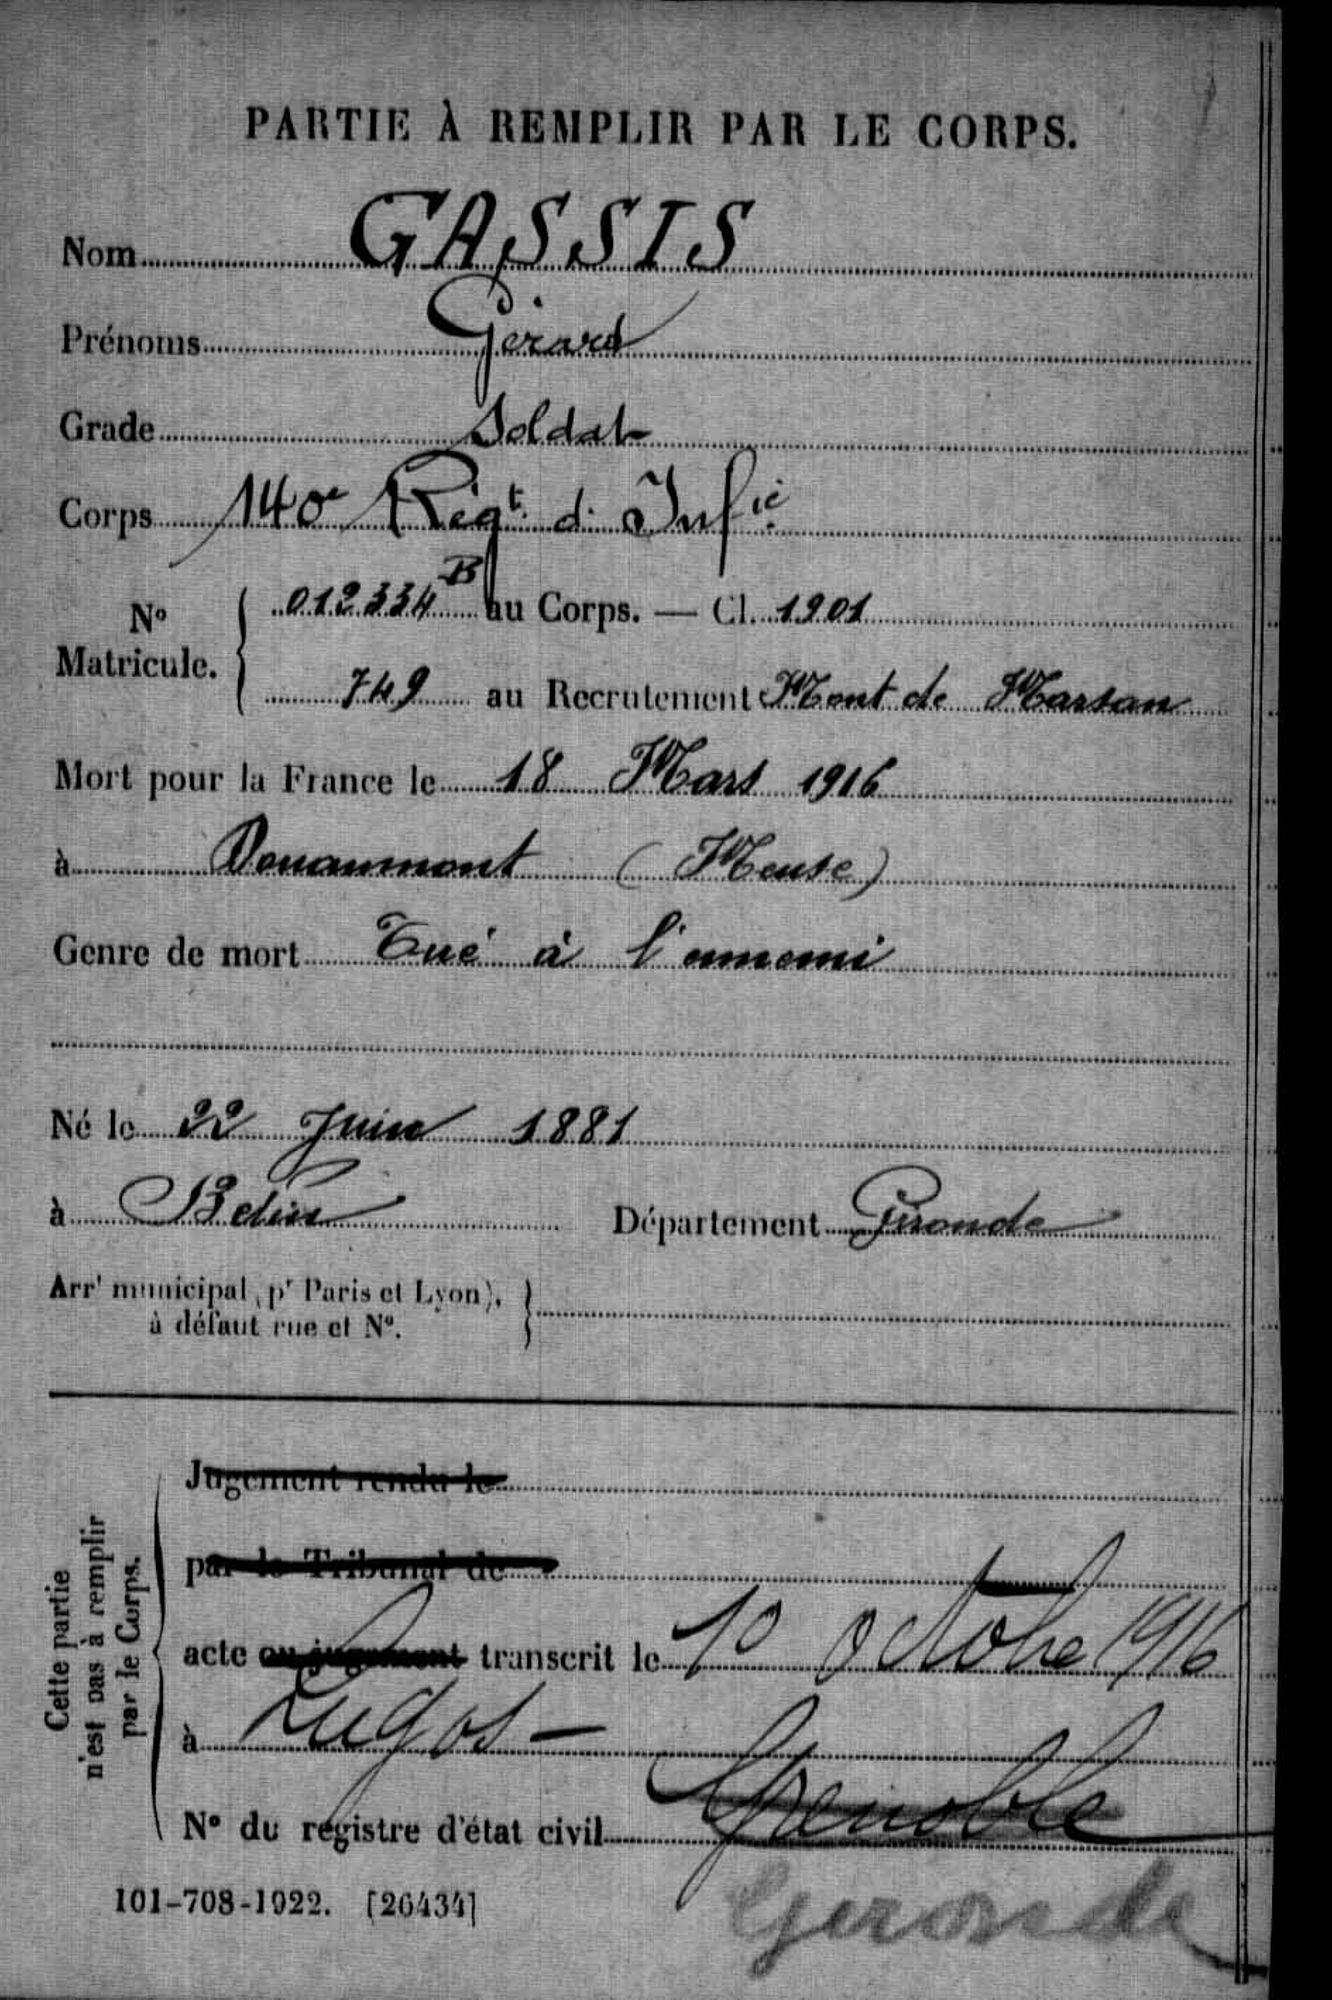 PARTIE À REMPLIR PAR LE CORPS.
Nom GASSIS
Prénoms Gérard
Grade Soldat
Corps 140e Régt. d. Infie
N° Matricule. 012334 B au Corps. — Cl. 1901
749 au Recrutement Mont de Marsan
Mort pour la France le 18 Mars 1916
à Douaumont (Meuse)
Genre de mort Tué à l'ennemi
Né le 22 Juin 1881
à Belin Département Gironde
Arrt municipal (pr Paris et Lyon),
à défaut rue et N°.
Cette partie
n'est pas à remplir
par le Corps.
Jugement rendu le
par le Tribunal de
acte ou jugement transcrit le 10 octobre 1916
à Lugos —
N° du registre d'état civil Grenoble
101-708-1922. [26434]
Gironde